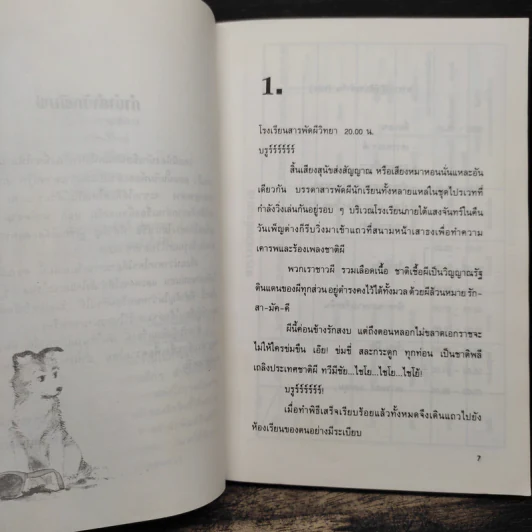 1.
โรงเรียนสารพัดผีวิทยา 20.00 น.
บรูร์ร์ร์ร์ร์ร์
สิ้นเสียงสุนัขส่งสัญญาณ หรือเสียงหมาหอนนั่นแหละอัน
เดียวกัน บรรดาสารพัดผีนักเรียนทั้งหลายแหล่ในชุดไปรเวทที่
กำลังวิ่งเล่นกันอยู่รอบ ๆ บริเวณโรงเรียนภายใต้แสงจันทร์ในคืน
วันเพ็ญต่างก็รีบวิ่งมาเข้าแถวที่สนามหน้าเสาธงเพื่อทำความ
เคารพและร้องเพลงชาติผี
พวกเราชาวผี รวมเลือดเนื้อ ชาติเชื้อผีเป็นวิญญาณรัฐ
ดินแดนของผีทุกส่วน อยู่ดำรงคงไว้ได้ทั้งมวล ด้วยผีล้วนหมาย รัก-
สา-มัค-คี
ผีนี้ค่อนข้างรักสงบ แต่ถึงตอนหลอกไม่ขลาดเอกราชจะ
ไม่ให้ใครข่มขืน เอ๊ย! ข่มขี่ สละกระดูก ทุกท่อน เป็นชาติพลี
เถลิงประเทศชาติผี ทวีมีชัย...ไชโย...ไชโย...ไชโย้!
บรูร์ร์ร์ร์ร์ร์!
เมื่อทำพิธีเสร็จเรียบร้อยแล้วทั้งหมดจึงเดินแถวไปยัง
ห้องเรียนของตนอย่างมีระเบียบ
7